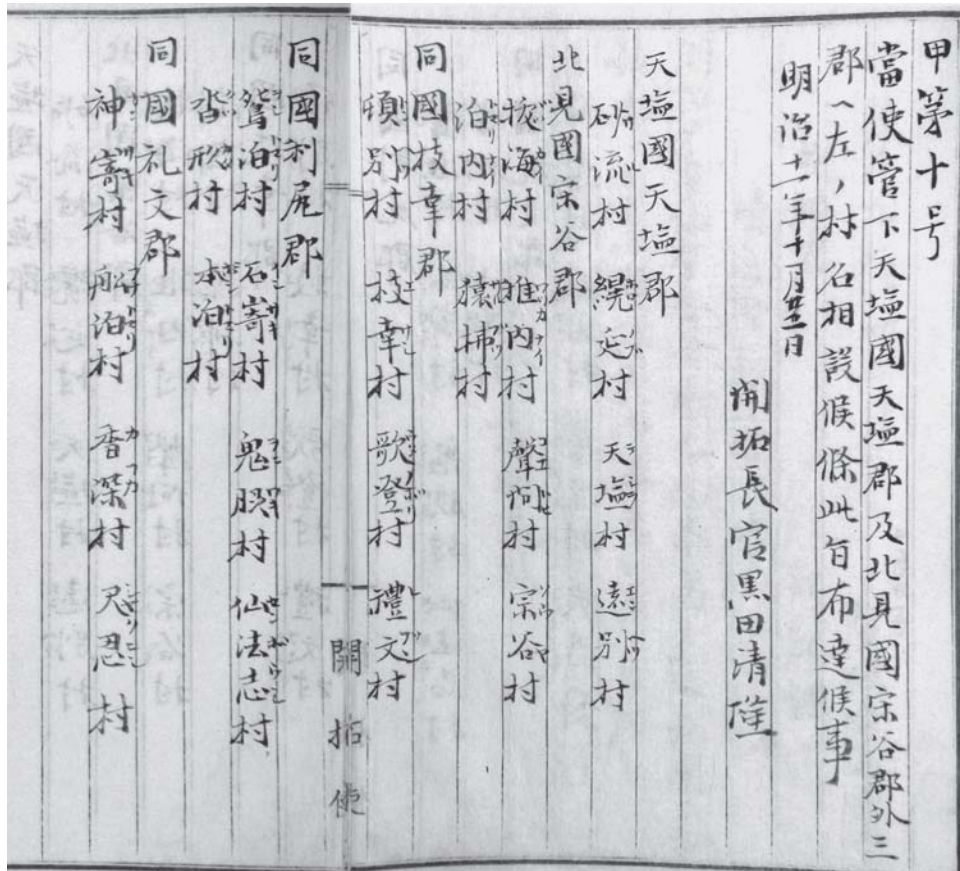 甲第十号
當使管下天塩國天塩郡及北見國宗谷郡外三
郡ヘ左ノ村名相設候條此旨布達候事
明治十一年十月廿三日
開拓長官黒田清隆
天塩國天塩郡
砂流村 幌延村 天塩村 遠別村
北見國宗谷郡
抜海村 稚内村 聲問村 宗谷村
泊内村 猿拂村
同國枝幸郡
頓別村 枝幸村 歌登村 禮文村
開拓使
同國利尻郡
鴛泊村 石嵜村 鬼脇村 仙法志村
沓形村 本泊村
同國礼文郡
神嵜村 船泊村 香深村 尺忍村